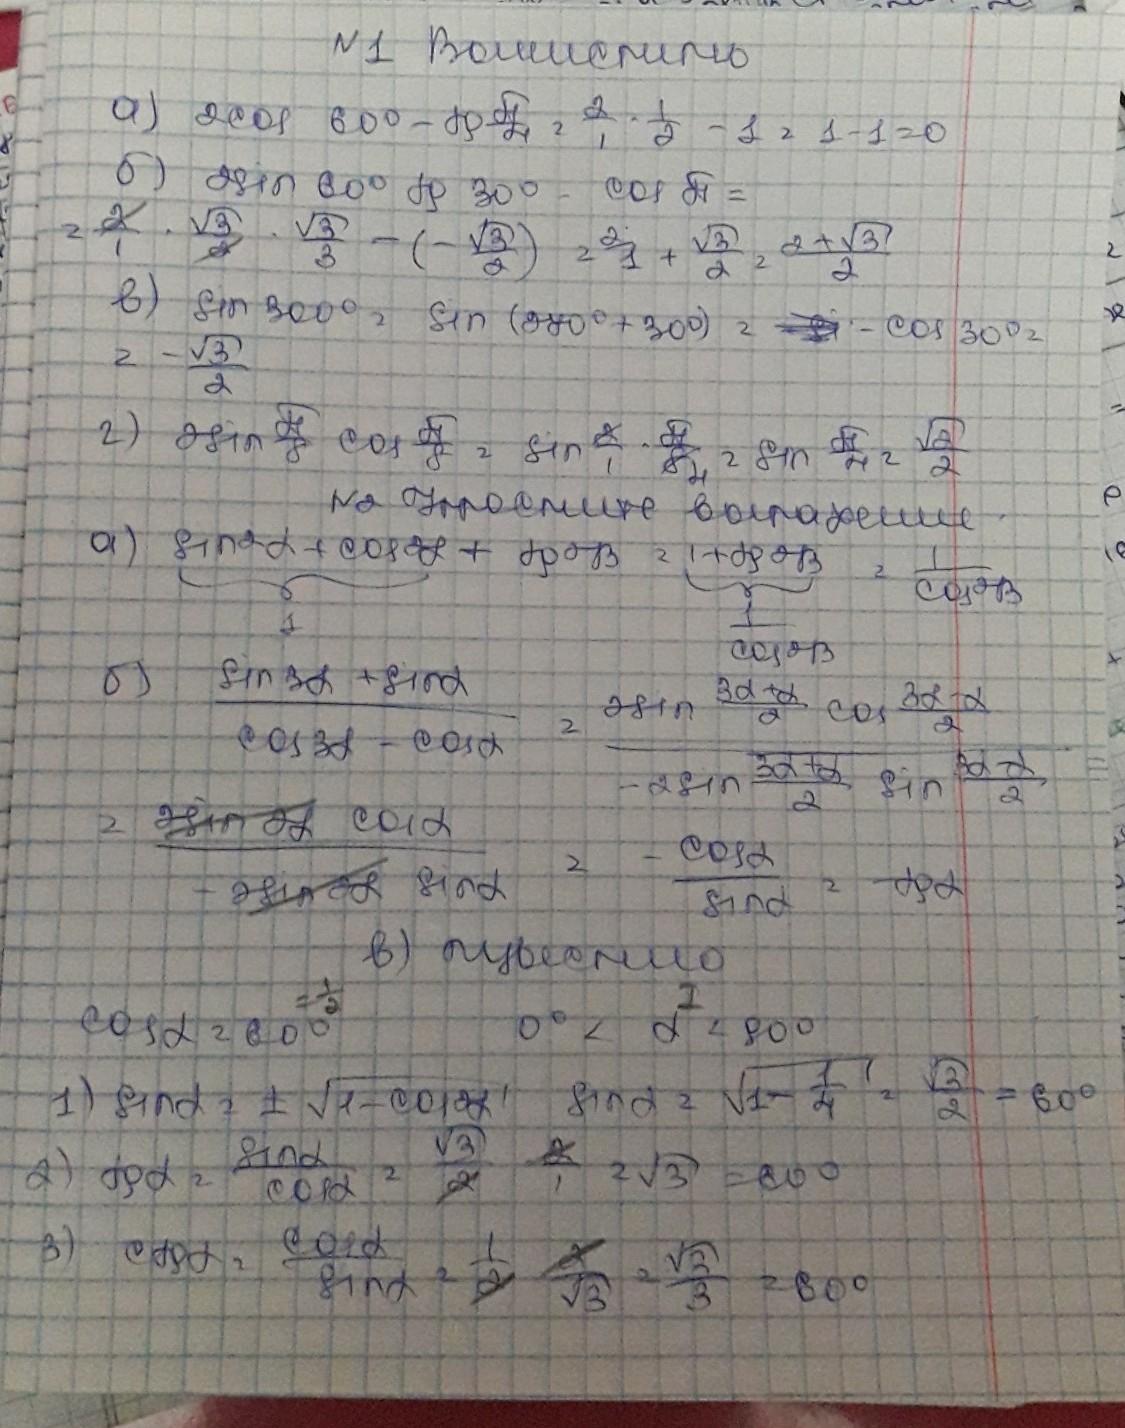 N1 Вычислить
а) 2cos 60° - tg π/4 = 2/1 · 1/2 - 1 = 1 - 1 = 0
б) 2sin 60° tg 30° - cos π =
= 2/1 · √3/2 · √3/3 - (-√3/2) = 2/1 + √3/2 = 2+√3/2
в) sin 300° = sin (270° + 30°) = - cos 30° =
= -√3/2
г) 2sin π/8 cos π/8 = sin 2/1 · π/8 4 = sin π/4 = √2/2
N2 Упростите выражение.
а) sin²α + cos²α + tg²β = 1 + tg²β = 1/cos²β
1 1/cos²β
б) sin3α + sinα / cos3α - cosα = 2sin 3α+α/2 cos 3α-α/2 / -2sin 3α+α/2 sin 3α-α/2
= 2sin 2α cosα / -2sin 2α sinα = - cosα/sinα = -tgα
в) известно
cosα = 60° = 1/2 0° < α < 90° I
1) sinα = ± √1-cos²α sinα = √1 - 1/4 = √3/2 = 60°
2) tgα = sinα/cosα = √3/2 2/1 = √3 = 60°
3) ctgα = cosα/sinα = 1/2 2/√3 = √3/3 = 60°